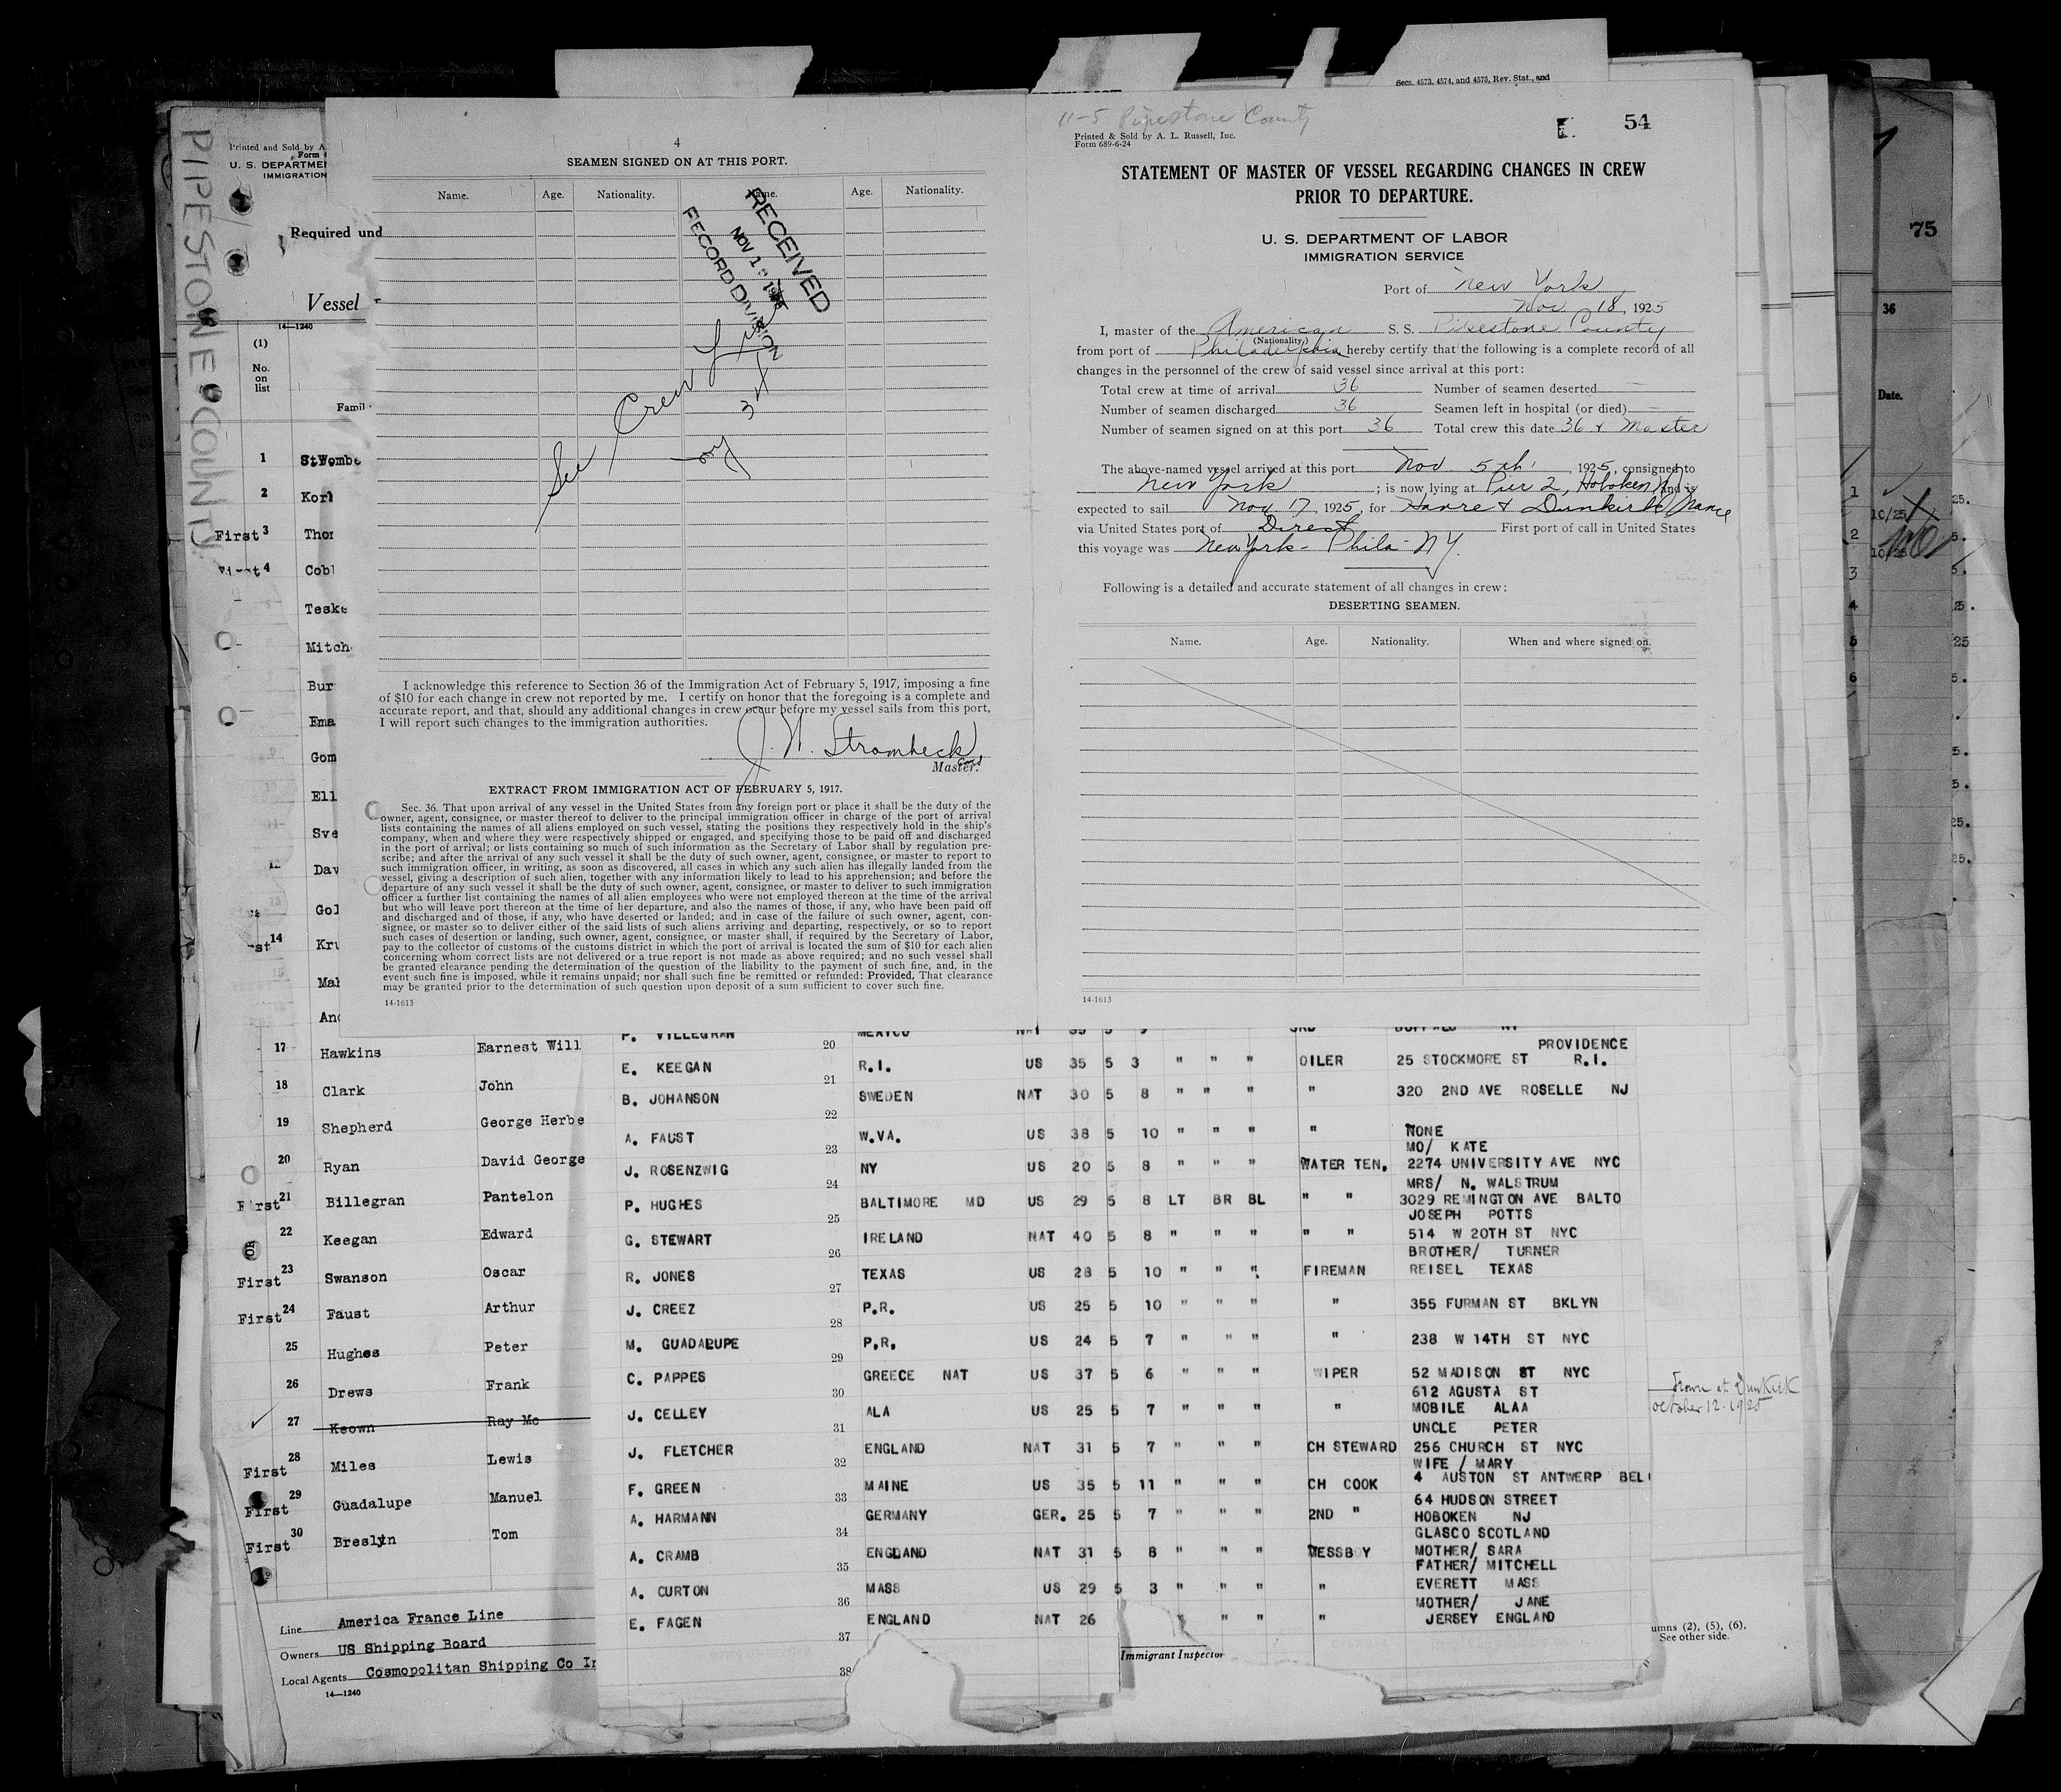 Secs. 4573, 4574, and 4575, Rev. Stat., and
PIPESTONE COUNTY
Printed and Sold by A
Form
U. S. DEPARTMEN
IMMIGRATION
Required und
Vessel
14—1240
(1)
No.
on
list
Famil
1
2 Kor
First 3 Thor
4 Cobl
Teske
Mitch
Bur
Ema
Gom
Ell
Sve
Dav
Gol
14 Kru
Mal
And
4
SEAMEN SIGNED ON AT THIS PORT.
Name. Age. Nationality. Name. Age. Nationality.
RECEIVED
NOV 1
RECORD DIVISION
See Crew List
I acknowledge this reference to Section 36 of the Immigration Act of February 5, 1917, imposing a fine
of $10 for each change in crew not reported by me. I certify on honor that the foregoing is a complete and
accurate report, and that, should any additional changes in crew occur before my vessel sails from this port,
I will report such changes to the immigration authorities.
J. W. Strombeck
Master.
EXTRACT FROM IMMIGRATION ACT OF FEBRUARY 5, 1917.
Sec. 36. That upon arrival of any vessel in the United States from any foreign port or place it shall be the duty of the
owner, agent, consignee, or master thereof to deliver to the principal immigration officer in charge of the port of arrival
lists containing the names of all aliens employed on such vessel, stating the positions they respectively hold in the ship's
company, when and where they were respectively shipped or engaged, and specifying those to be paid off and discharged
in the port of arrival; or lists containing so much of such information as the Secretary of Labor shall by regulation pre-
scribe; and after the arrival of any such vessel it shall be the duty of such owner, agent, consignee, or master to report to
such immigration officer, in writing, as soon as discovered, all cases in which any such alien has illegally landed from the
vessel, giving a description of such alien, together with any information likely to lead to his apprehension; and before the
departure of any such vessel it shall be the duty of such owner, agent, consignee, or master to deliver to such immigration
officer a further list containing the names of all alien employees who were not employed thereon at the time of the arrival
but who will leave port thereon at the time of her departure, and also the names of those, if any, who have been paid off
and discharged and of those, if any, who have deserted or landed; and in case of the failure of such owner, agent, con-
signee, or master so to deliver either of the said lists of such aliens arriving and departing, respectively, or so to report
such cases of desertion or landing, such owner, agent, consignee, or master shall, if required by the Secretary of Labor,
pay to the collector of customs of the customs district in which the port of arrival is located the sum of $10 for each alien
concerning whom correct lists are not delivered or a true report is not made as above required; and no such vessel shall
be granted clearance pending the determination of the question of the liability to the payment of such fine, and, in the
event such fine is imposed, while it remains unpaid; nor shall such fine be remitted or refunded: Provided, That clearance
may be granted prior to the determination of such question upon deposit of a sum sufficient to cover such fine.
14-1613
11-5 Pipestone County
Printed & Sold by A. L. Russell, Inc.
Form 689-6-24
E. 54
STATEMENT OF MASTER OF VESSEL REGARDING CHANGES IN CREW
PRIOR TO DEPARTURE.
U. S. DEPARTMENT OF LABOR
IMMIGRATION SERVICE
Port of New York
Nov. 18, 1925
I, master of the American S. S. Pipestone County
(Nationality)
from port of Philadelphia hereby certify that the following is a complete record of all
changes in the personnel of the crew of said vessel since arrival at this port:
Total crew at time of arrival 36 Number of seamen deserted —
Number of seamen discharged 36 Seamen left in hospital (or died) —
Number of seamen signed on at this port 36 Total crew this date 36 & Master
The above-named vessel arrived at this port Nov. 5th, 1925, consigned to
New York; is now lying at Pier 2, Hoboken NJ and is
expected to sail Nov. 17, 1925, for Havre & Dunkirk France
via United States port of Direct First port of call in United States
this voyage was New York - Phila - NY.
Following is a detailed and accurate statement of all changes in crew:
DESERTING SEAMEN.
Name. Age. Nationality. When and where signed on.
14-1613
75
36
Date.
1 10/25
2 10/25
3
4
5
6
17 Hawkins Earnest Will
18 Clark John
19 Shepherd George Herbe
20 Ryan David George
First 21 Billegran Pantelon
22 Keegan Edward
First 23 Swanson Oscar
First 24 Faust Arthur
25 Hughes Peter
26 Drews Frank
27 Keown Ray Mc
First 28 Miles Lewis
First 29 Guadalupe Manuel
First 30 Breslyn Tom
Line America France Line
Owners US Shipping Board
Local Agents Cosmopolitan Shipping Co In
14—1240
P. VILLEGRAN MEXICO NAT 35 5 9 3RD BUFFALO NY
20 PROVIDENCE
E. KEEGAN R.I. US 35 5 3 " " " OILER 25 STOCKMORE ST R.I.
21
B. JOHANSON SWEDEN NAT 30 5 8 " " " " 320 2ND AVE ROSELLE NJ
22
A. FAUST W.VA. US 38 5 10 " " " " NONE
23 MO/ KATE
J. ROSENZWIG NY US 20 5 8 " " " WATER TEN. 2274 UNIVERSITY AVE NYC
24 MRS/ N. WALSTRUM
P. HUGHES BALTIMORE MD US 29 5 8 LT BR BL " " 3029 REMINGTON AVE BALTO
25 JOSEPH POTTS
G. STEWART IRELAND NAT 40 5 8 " " " " " 514 W 20TH ST NYC
26 BROTHER/ TURNER
R. JONES TEXAS US 28 5 10 " " " FIREMAN REISEL TEXAS
27
J. CREEZ P.R. US 25 5 10 " " " " 355 FURMAN ST BKLYN
28
M. GUADALUPE P.R. US 24 5 7 " " " " 238 W 14TH ST NYC
29
C. PAPPES GREECE NAT US 37 5 6 " " " WIPER 52 MADISON ST NYC
30 612 AGUSTA ST
J. CELLEY ALA US 25 5 7 " " " " MOBILE ALAA
31 UNCLE PETER
J. FLETCHER ENGLAND NAT 31 5 7 " " " CH STEWARD 256 CHURCH ST NYC
32 WIFE / MARY
F. GREEN MAINE US 35 5 11 " " " CH COOK 4 AUSTON ST ANTWERP BEL
33 64 HUDSON STREET
A. HARMANN GERMANY GER. 25 5 7 " " " 2ND " HOBOKEN NJ
34 GLASCO SCOTLAND
A. CRAMB ENGLAND NAT 31 5 8 " " " MESSBOY MOTHER/ SARA
35 FATHER/ MITCHELL
A. CURTON MASS US 29 5 3 " " " " EVERETT MASS
36 MOTHER/ JANE
E. FAGEN ENGLAND NAT 26 " " " JERSEY ENGLAND
37
38
Immigrant Inspector
at Dunkirk
October 12. 1925
umns (2), (5), (6),
See other side.